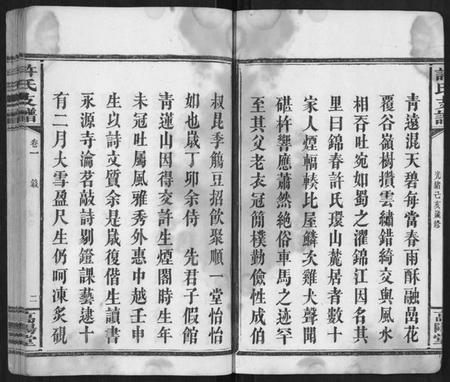 許氏支譜
光緒己亥歲修
高陽堂
青遠混天碧每當春雨酥融喦花
覆谷嶺樹攢雲繡錯綺交與風水
相吞吐宛如蜀之濯錦江因名其
里曰錦春許氏環山麓居者數十
家人煙輻輳比屋鱗次雞犬聲聞
碪杵響應蕭然絶俗車馬之迹罕
至其父老衣冠簡樸勤儉性成伯
叔昆季觴豆招飲聚順一堂怡怡
如也歲丁卯余侍 先君子假館
青蓮山因得交許生煙閣時生年
未冠吐屬風雅秀外惠中越壬申
生以詩文質余是歲復偕生讀書
永源寺瀹茗敲詩剔鐙課藝逮十
有二月大雪盈尺生仍呵凍炙硯
許氏支譜
卷一 敍
二
高陽堂